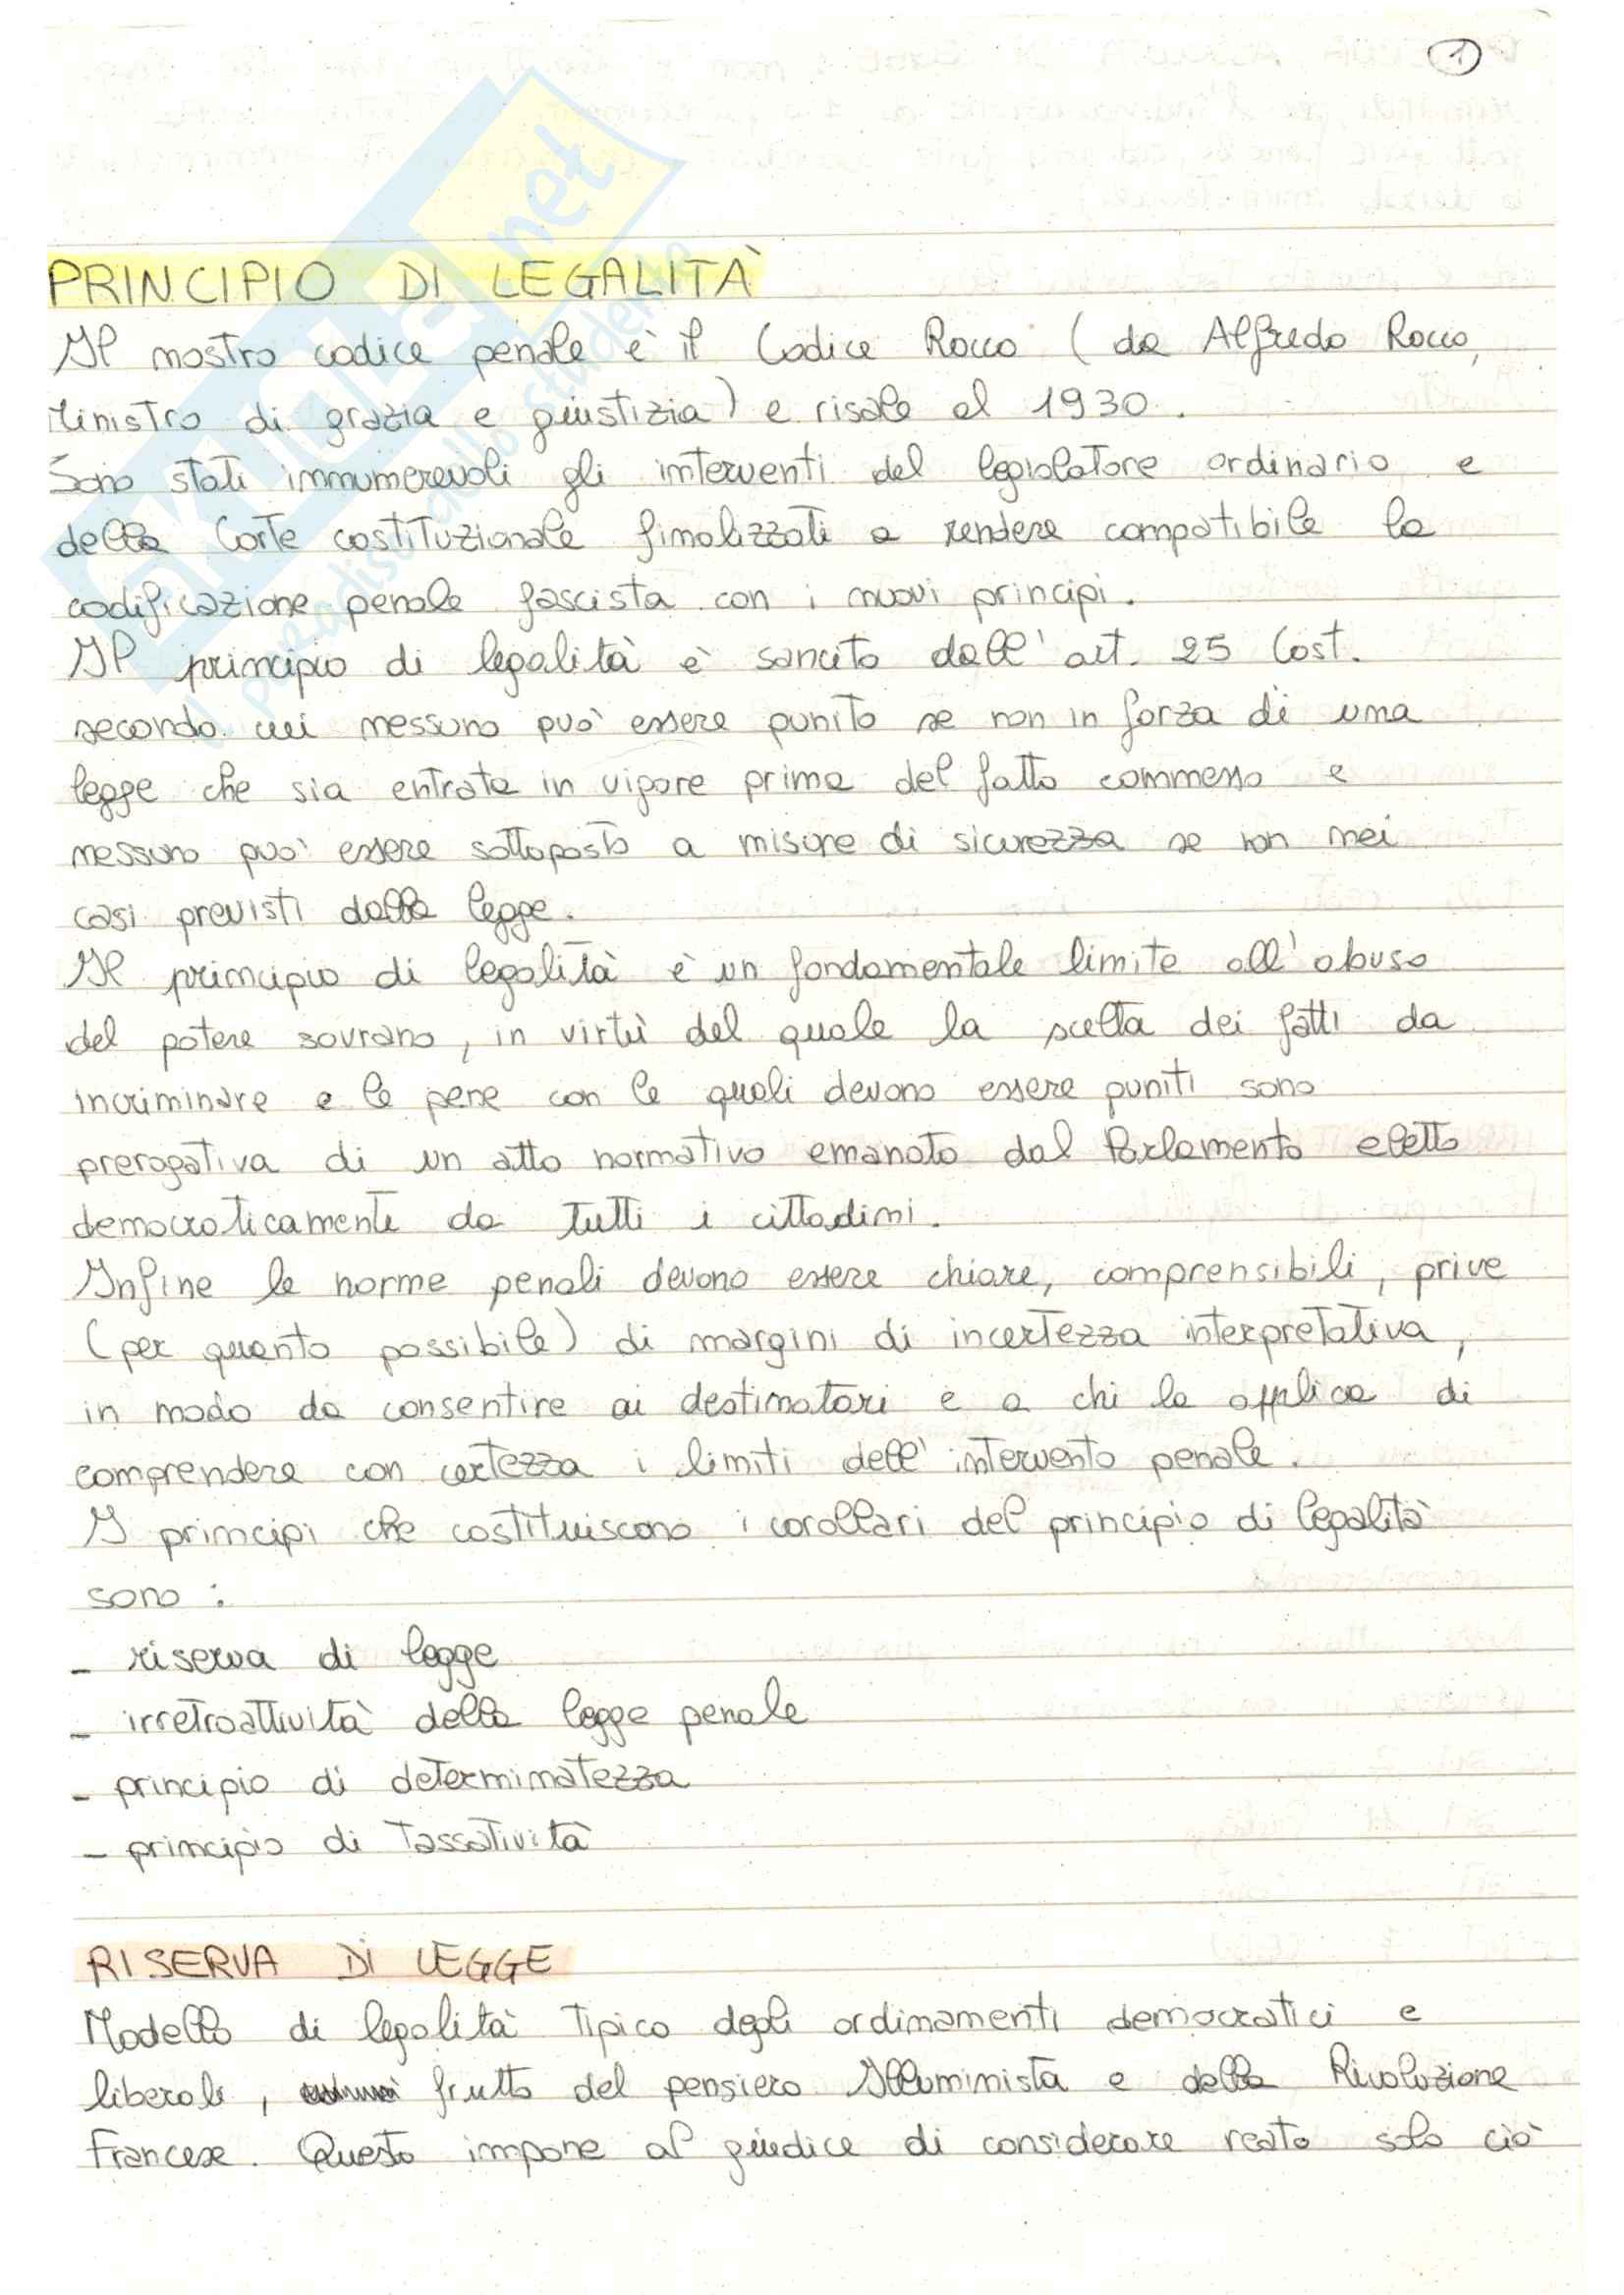 1
PRINCIPIO DI LEGALITÀ
Il nostro codice penale è il Codice Rocco (da Alfredo Rocco,
Ministro di grazia e giustizia) e risale al 1930.
Sono stati innumerevoli gli interventi del legislatore ordinario e
della Corte costituzionale finalizzati a rendere compatibile la
codificazione penale fascista con i nuovi principi.
Il principio di legalità è sancito dall'art. 25 Cost.
secondo cui nessuno può essere punito se non in forza di una
legge che sia entrata in vigore prima del fatto commesso e
nessuno può essere sottoposto a misure di sicurezza se non nei
casi previsti dalla legge.
Il principio di legalità è un fondamentale limite all'abuso
del potere sovrano, in virtù del quale la scelta dei fatti da
incriminare e le pene con le quali devono essere puniti sono
prerogativa di un atto normativo emanato dal Parlamento eletto
democraticamente da tutti i cittadini.
Infine le norme penali devono essere chiare, comprensibili, prive
(per quanto possibile) di margini di incertezza interpretativa,
in modo da consentire ai destinatari e a chi la applica di
comprendere con certezza i limiti dell'intervento penale.
I principi che costituiscono i corollari del principio di legalità
sono:
- riserva di legge
- irretroattività della legge penale
- principio di determinatezza
- principio di tassatività
RISERVA DI LEGGE
Modello di legalità tipico degli ordinamenti democratici e
liberali, frutto del pensiero Illuminista e della Rivoluzione
Francese. Questo impone al giudice di considerare reato solo ciò
SKUOLA.net
il paradiso dello studente